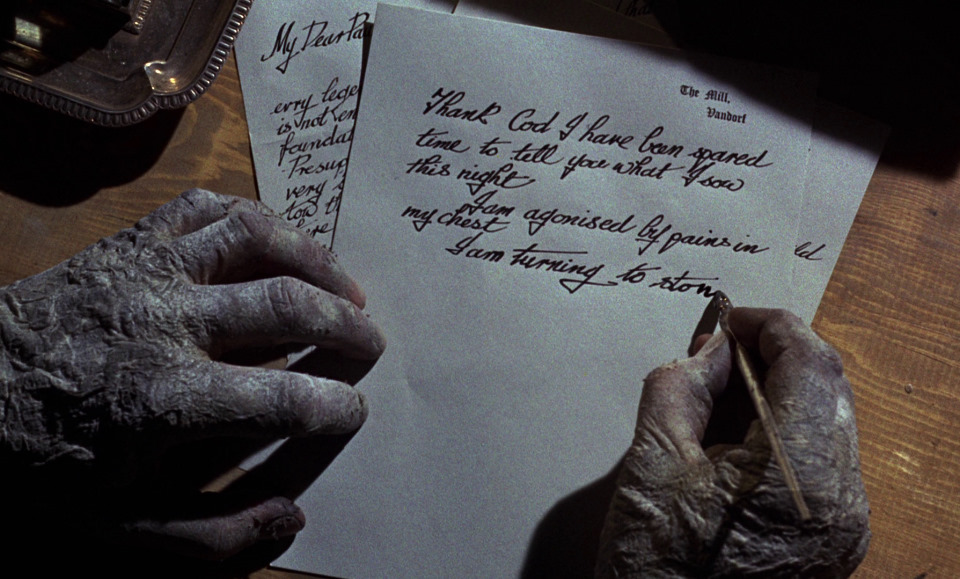 My Dear Pa
erry lege
is not en
founda
Presup
very
tow th
here
The Mill,
Vandorf
Thank God I have been spared
time to tell you what I saw
this night
I am agonised by pains in
my chest
ld
I am turning to ston